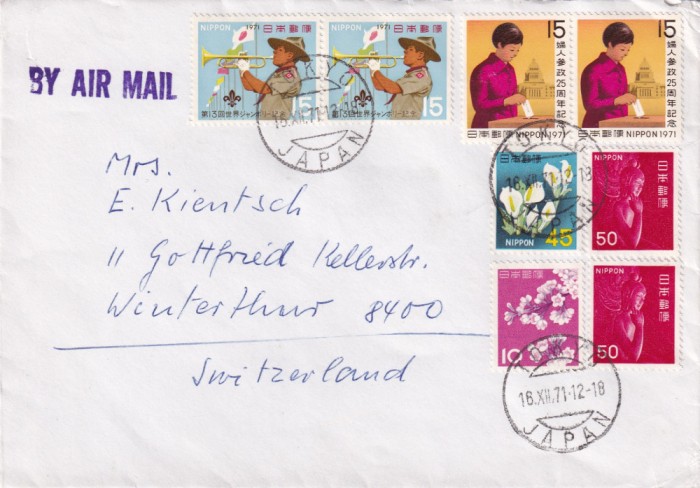 BY AIR MAIL
NIPPON 1971 日本郵便
第13回世界ジャンボリー記念
15
NIPPON 1971 日本郵便
15
15
婦人参政25周年記念
日本郵便 NIPPON 1971
15
婦人参政25周年記念
日本郵便 NIPPON 1971
TOKYO
16.XII.71.12-18
JAPAN
Mrs.
E. Kientsch
11 Gottfried Kellerstr.
Winterthur 8400
Switzerland
TOKYO
16.XII.71.12-18
JAPAN
日本郵便
NIPPON 45
NIPPON
日本郵便
50
日本郵便
NIPPON
10
NIPPON
日本郵便
50
TOKYO
16.XII.71.12-18
JAPAN